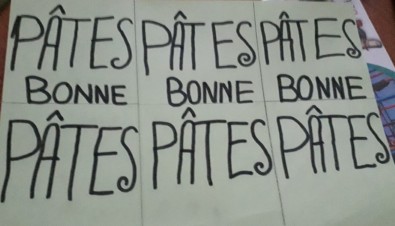 PÂTES PÂTES PÂTES
BONNE BONNE BONNE
PÂTES PÂTES PÂTES